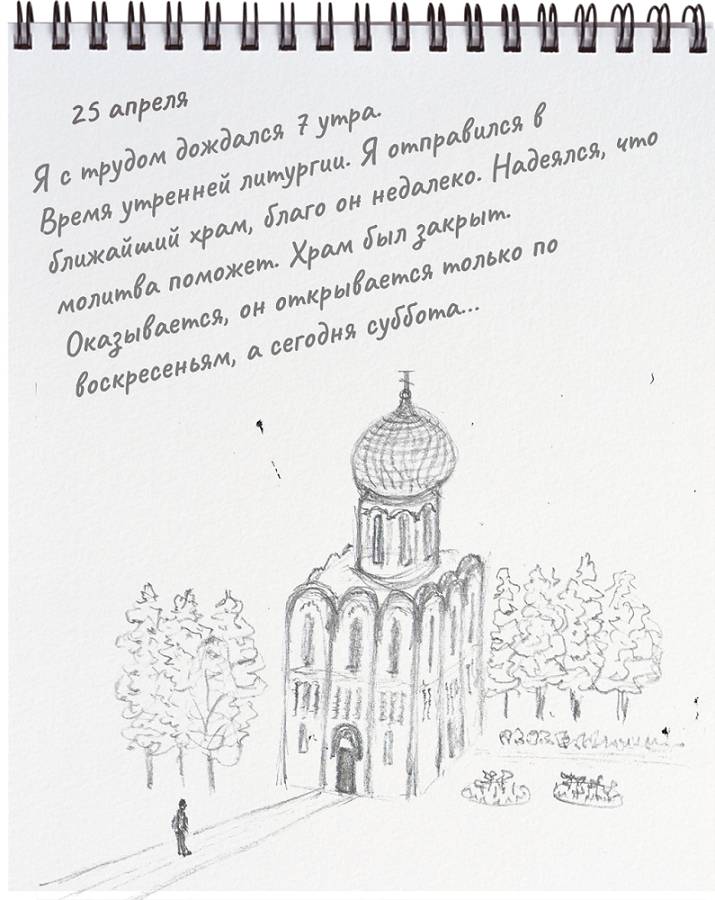 25 апреля
Я с трудом дождался 7 утра.
Время утренней литургии. Я отправился в
ближайший храм, благо он недалеко. Надеялся, что
молитва поможет. Храм был закрыт.
Оказывается, он открывается только по
воскресеньям, а сегодня суббота...